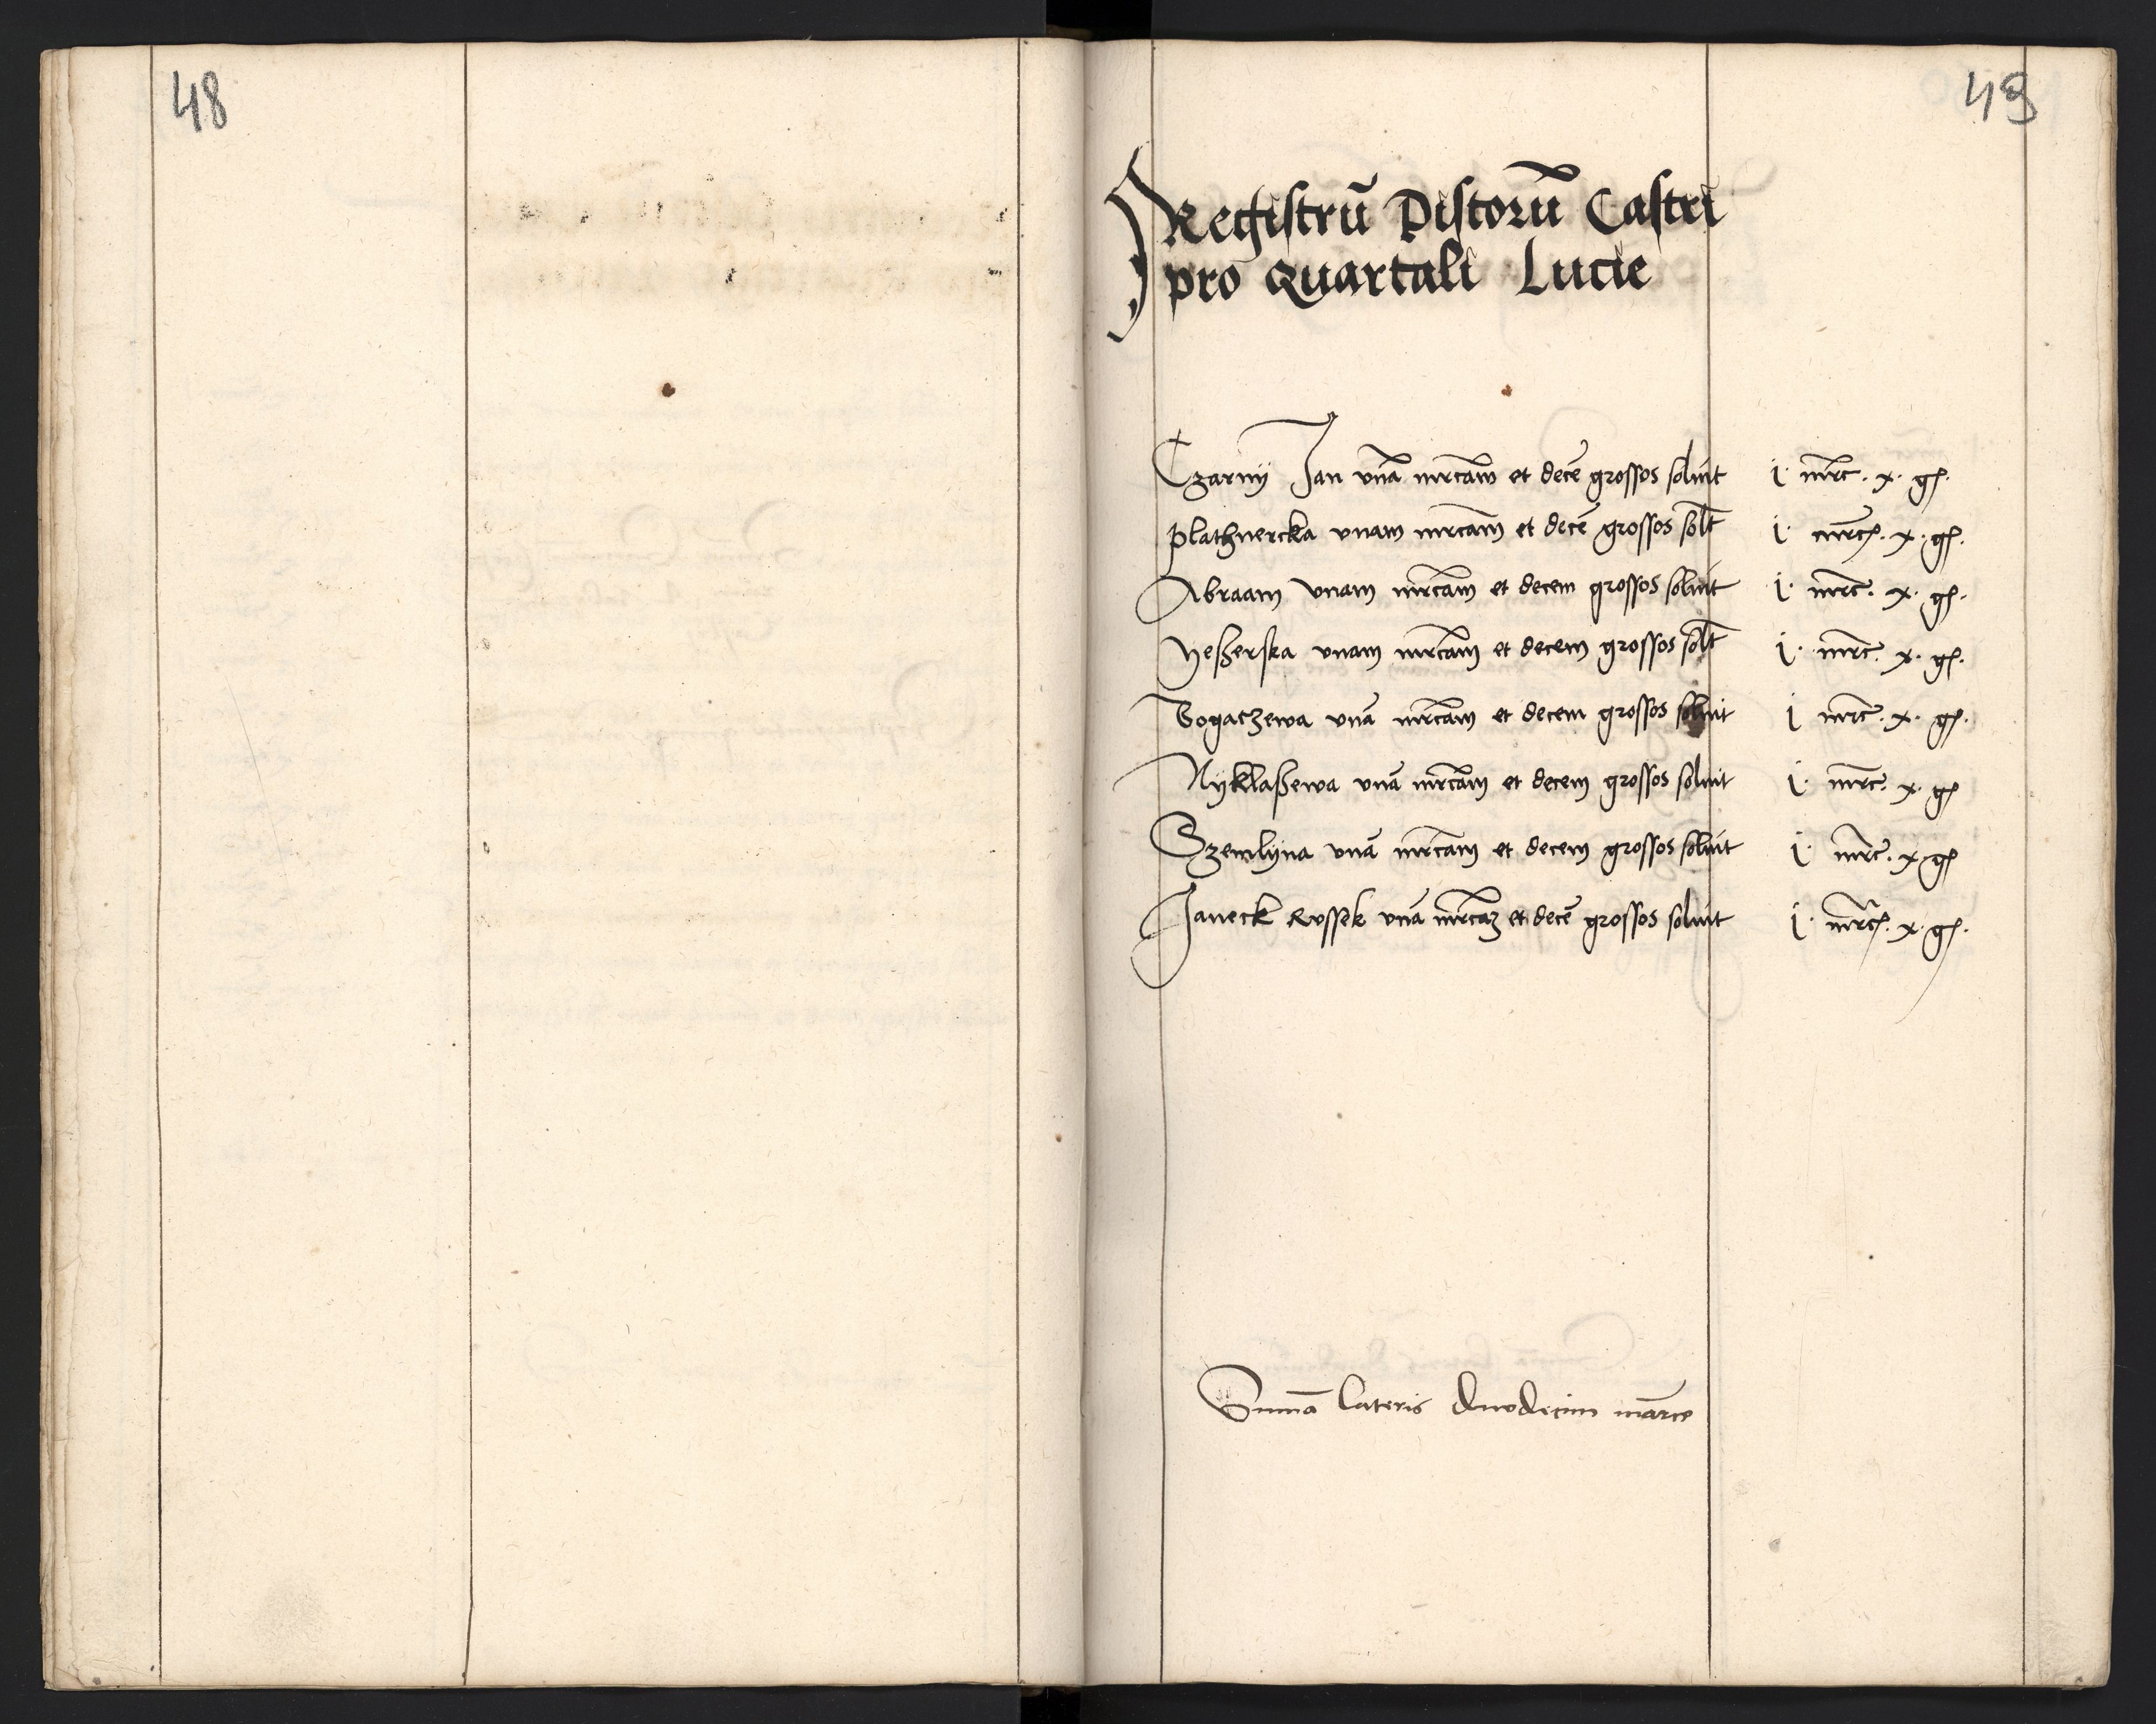 48
49
Registrũ Pistorũ Castri
pro Quartali Lucie
Czarnij Jan vnã mrcam et decẽ grossos soluit j. mrc. x. gſ.
plathnercka vnam mrcam et decẽ grossos solt j. mrcſ. x. gſ.
Abraam vnam mrcam et decem grossos soluit j. mrc. x. gſ.
Heßerska vnam mrcam et decem grossos solt j. mrc. x. gſ.
Bogaczewa vnã mrcam et decem grossos soluit j mrc. x. gſ.
Nyklaßewa vnã mrcam et decem grossos soluit j. mrc. x. gſ
Szemlyna vnã mrcam et decem grossos soluit j. mrc. x. gſ
Janeck Russek vnã mrcaz et decẽ grossos soluit j. mrcſ. x. gſ.
Summã lateris duodecim marce